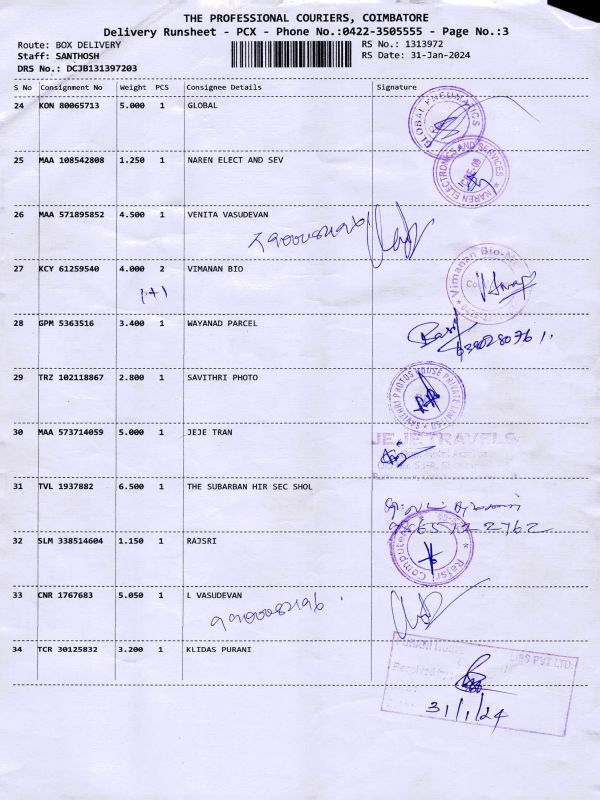 THE PROFESSIONAL COURIERS, COIMBATORE
Delivery Runsheet - PCX - Phone No.:0422-3505555 - Page No.:3
Route: BOX DELIVERY RS No.: 1313972
Staff: SANTHOSH RS Date: 31-Jan-2024
DRS No.: DCJB131397203
S No Consignment No Weight PCS Consignee Details Signature
24 KON 80065713 5.000 1 GLOBAL
GLOBAL PNEUMATICS
25 MAA 108542808 1.250 1 NAREN ELECT AND SEV
NAREN ELECTRONICS AND SERVICES
26 MAA 571895852 4.500 1 VENITA VASUDEVAN
27 KCY 61259540 4.000 2 VIMANAN BIO
1+1
Vimanan Bio
28 GPM 5363516 3.400 1 WAYANAD PARCEL
29 TRZ 102118867 2.800 1 SAVITHRI PHOTO
SAVITHRI PHOTOS HOUSE PRIVATE LIMITED
30 MAA 573714059 5.000 1 JEJE TRAN
JEJE TRAVELS
31 TVL 1937882 6.500 1 THE SUBARBAN HIR SEC SHOL
32 SLM 338514604 1.150 1 RAJSRI
Rajsri Computer
33 CNR 1767683 5.050 1 L VASUDEVAN
34 TCR 30125832 3.200 1 KLIDAS PURANI
PURANI PVT LTD.
Received
31/1/24